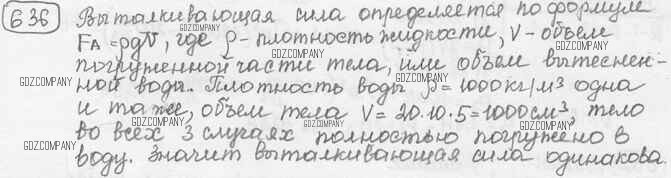 636 Выталкивающая сила определяется по формуле
FA = ρgV, где ρ - плотность жидкости, V - объем
погруженной части тела, или объем вытеснен-
ной воды. Плотность воды ρ = 1000 кг/м³ одна
и та же, объем тела V = 20·10·5 = 1000 см³, тело
во всех 3 случаях полностью погружено в
воду. Значит выталкивающая сила одинакова.
GDZ.COMPANY
GDZ.COMPANY
GDZ.COMPANY
GDZ.COMPANY
GDZ.COMPANY
GDZ.COMPANY
GDZ.COMPANY
GDZ.COMPANY
GDZ.COMPANY
GDZ.COMPANY
GDZ.COMPANY
GDZ.COMPANY